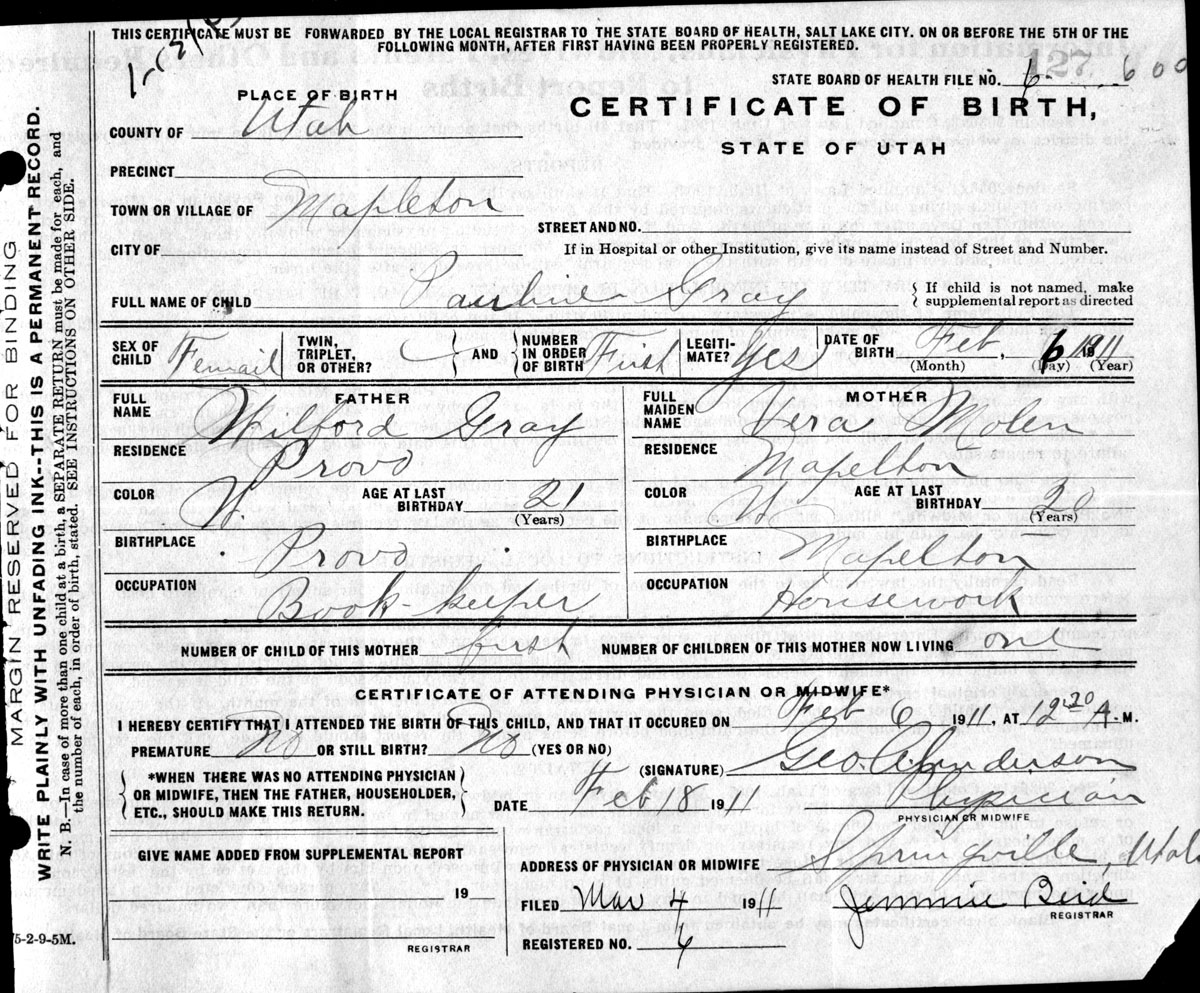 THIS CERTIFICATE MUST BE FORWARDED BY THE LOCAL REGISTRAR TO THE STATE BOARD OF HEALTH, SALT LAKE CITY. ON OR BEFORE THE 5TH OF THE
FOLLOWING MONTH, AFTER FIRST HAVING BEEN PROPERLY REGISTERED.
STATE BOARD OF HEALTH FILE NO. 6 127 600
PLACE OF BIRTH
CERTIFICATE OF BIRTH,
COUNTY OF Utah
STATE OF UTAH
PRECINCT
TOWN OR VILLAGE OF Mapleton
STREET AND NO.
CITY OF
If in Hospital or other Institution, give its name instead of Street and Number.
FULL NAME OF CHILD Pauline Gray { If child is not named, make supplemental report as directed
SEX OF CHILD Femail TWIN, TRIPLET, OR OTHER? AND NUMBER IN ORDER OF BIRTH First LEGITI-MATE? Yes DATE OF BIRTH Feb, 6 1911
(Month) (Day) (Year)
FATHER
FULL NAME Wilford Gray
RESIDENCE Provo
COLOR W. AGE AT LAST BIRTHDAY 21
(Years)
BIRTHPLACE Provo
OCCUPATION Book-keeper
MOTHER
FULL MAIDEN NAME Vera Molen
RESIDENCE Mapelton
COLOR W AGE AT LAST BIRTHDAY 20
(Years)
BIRTHPLACE Mapelton
OCCUPATION Housework
NUMBER OF CHILD OF THIS MOTHER first NUMBER OF CHILDREN OF THIS MOTHER NOW LIVING one
CERTIFICATE OF ATTENDING PHYSICIAN OR MIDWIFE*
I HEREBY CERTIFY THAT I ATTENDED THE BIRTH OF THIS CHILD, AND THAT IT OCCURED ON Feb 6 1911, AT 12.20 A. M.
PREMATURE No OR STILL BIRTH? No (YES OR NO)
(SIGNATURE) Geo. A. Anderson
*WHEN THERE WAS NO ATTENDING PHYSICIAN
OR MIDWIFE, THEN THE FATHER, HOUSEHOLDER,
ETC., SHOULD MAKE THIS RETURN.
DATE Feb 18 1911 Physician
PHYSICIAN OR MIDWIFE
GIVE NAME ADDED FROM SUPPLEMENTAL REPORT
19
REGISTRAR
ADDRESS OF PHYSICIAN OR MIDWIFE Springville, Utah
FILED Mar 4 1911 Jemmie Bird
REGISTRAR
REGISTERED NO. 4
75-2-9-5M.
MARGIN RESERVED FOR BINDING
WRITE PLAINLY WITH UNFADING INK--THIS IS A PERMANENT RECORD.
N. B.--In case of more than one child at a birth, a SEPARATE RETURN must be made for each, and
the number of each, in order of birth, stated. SEE INSTRUCTIONS ON OTHER SIDE.